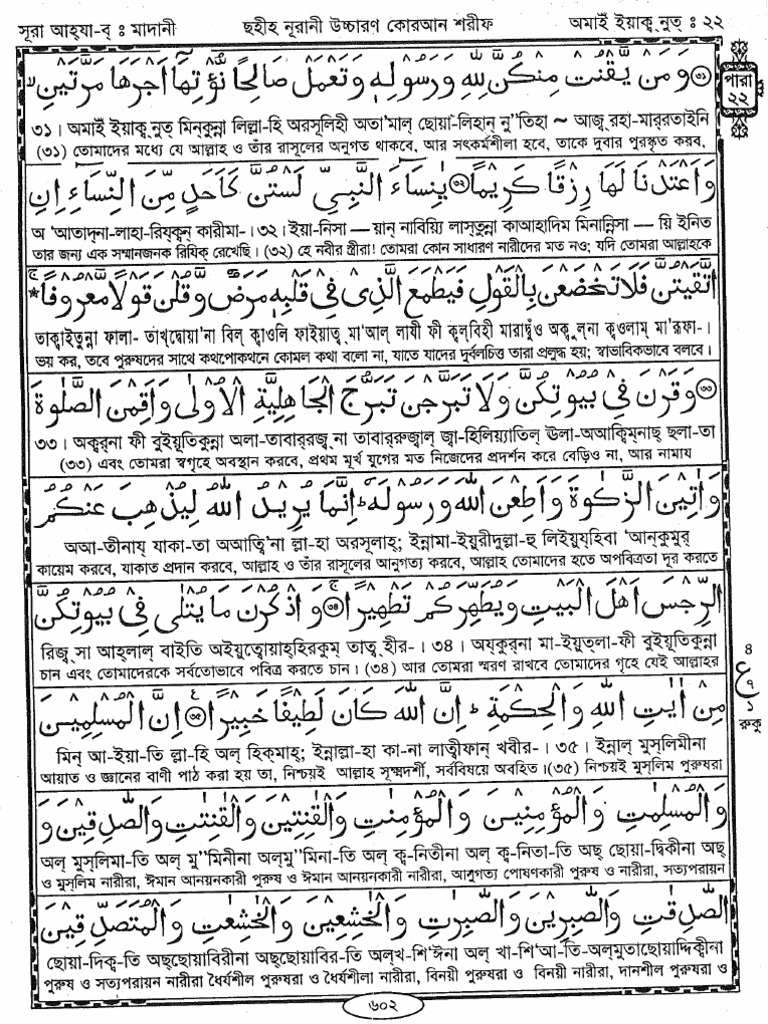 সূরা আহ্‌যা-ব্‌ : মাদানী
ছহীহ নূরানী উচ্চারণ কোরআন শরীফ
অমাইঁ ইয়াক্ব্‌ নুত্‌ : ২২
পারা
২২
۳۱ وَمَنْ يَّقْنُتْ مِنْكُنَّ لِلّٰهِ وَرَسُوْلِهٖ وَتَعْمَلْ صَالِحًا نُّؤْتِهَآ اَجْرَهَا مَرَّتَيْنِ ۙ
৩১। অমাইঁ ইয়াক্ব্‌নুত্‌ মিন্‌কুন্না লিল্লা-হি অরসূলিহী অতা'মাল্‌ ছোয়া-লিহান্‌ নু"তিহা ~ আজ্ব্‌ রহা-মার্‌রতাইনি
(৩১) তোমাদের মধ্যে যে আল্লাহ ও তাঁর রাসূলের অনুগত থাকবে, আর সৎকর্মশীলা হবে, তাকে দুবার পুরস্কৃত করব,
وَاَعْتَدْنَا لَهَا رِزْقًا كَرِيْمًا ۳۲ يٰنِسَآءَ النَّبِيِّ لَسْتُنَّ كَاَحَدٍ مِّنَ النِّسَآءِ اِنِ
অ 'আতাদ্‌না-লাহা-রিয্‌ক্বন্‌ কারীমা-।৩২। ইয়া-নিসা — য়ান্‌ নাবিয়্যি লাস্‌তুন্না কাআহাদিম মিনান্নিসা — য়ি ইনিত
তার জন্য এক সম্মানজনক রিযিক রেখেছি। (৩২) হে নবীর স্ত্রীরা! তোমরা কোন সাধারণ নারীদের মত নও; যদি তোমরা আল্লাহকে
اتَّقَيْتُنَّ فَلَا تَخْضَعْنَ بِالْقَوْلِ فَيَطْمَعَ الَّذِيْ فِيْ قَلْبِهٖ مَرَضٌ وَّقُلْنَ قَوْلًا مَّعْرُوْفًا ۚ
তাক্বাইতুন্না ফালা- তাখ্‌দ্বোয়া'না বিল্‌ ক্বাওলি ফাইয়াত্ব্‌ মা'আল্‌ লাযী ফী ক্বল্‌বিহী মারাদ্বুঁও অক্বুল্‌না ক্বওলাম্‌ মা'রূফা-।
ভয় কর, তবে পুরুষদের সাথে কথপোকথনে কোমল কথা বলো না, যাতে যাদের দুর্বলচিত্ত তারা প্রলুব্ধ হয়; স্বাভাবিকভাবে বলবে।
۳۳ وَقَرْنَ فِيْ بُيُوْتِكُنَّ وَلَا تَبَرَّجْنَ تَبَرُّجَ الْجَاهِلِيَّةِ الْاُوْلٰى وَاَقِمْنَ الصَّلٰوةَ
৩৩। অক্বর্‌না ফী বুইয়ূতিকুন্না অলা-তাবার্‌রজ্ব্‌ না তাবার্‌রুজ্বাল্‌ জ্বা-হিলিয়্যাতিল্‌ ঊলা-অআক্বিম্‌নাছ্‌ ছলা-তা
(৩৩) এবং তোমরা স্বগৃহে অবস্থান করবে, প্রথম মূর্খ যুগের মত নিজেদের প্রদর্শন করে বেড়িও না, আর নামায
وَاٰتِيْنَ الزَّكٰوةَ وَاَطِعْنَ اللّٰهَ وَرَسُوْلَهٗ ؕ اِنَّمَا يُرِيْدُ اللّٰهُ لِيُذْهِبَ عَنْكُمُ
অআ-তীনায্‌ যাকা-তা অআত্বি'না ল্লা-হা অরসূলাহ্‌; ইন্নামা-ইয়ুরীদুল্লা-হু লিইয়ুয্‌হিবা 'আন্‌কুমুর্‌
কায়েম করবে, যাকাত প্রদান করবে, আল্লাহ ও তাঁর রাসূলের আনুগত্য করবে, আল্লাহ তোমাদের হতে অপবিত্রতা দূর করতে
الرِّجْسَ اَهْلَ الْبَيْتِ وَيُطَهِّرَكُمْ تَطْهِيْرًا ۚ ۳۴ وَاذْكُرْنَ مَا يُتْلٰى فِيْ بُيُوْتِكُنَّ
রিজ্ব্‌ সা আহ্‌লাল্‌ বাইতি অইয়ুত্বোয়াহ্‌হিরকুম্‌ তাত্ব্‌ হীর-। ৩৪। অয্‌কুর্‌না মা-ইয়ুত্‌লা-ফী বুইয়ূতিকুন্না
চান এবং তোমাদেরকে সর্বতোভাবে পবিত্র করতে চান। (৩৪) আর তোমরা স্মরণ রাখবে তোমাদের গৃহে যেই আল্লাহর
مِنْ اٰيٰتِ اللّٰهِ وَالْحِكْمَةِ ؕ اِنَّ اللّٰهَ كَانَ لَطِيْفًا خَبِيْرًا ۳۵ اِنَّ الْمُسْلِمِيْنَ
৪
ع
৭
১
রুকূ
মিন্‌ আ-ইয়া-তি ল্লা-হি অল্‌ হিক্‌মাহ্‌; ইন্নাল্লা-হা কা-না লাত্বীফান্‌ খবীর-। ৩৫। ইন্নাল্‌ মুস্‌লিমীনা
আয়াত ও জ্ঞানের বাণী পাঠ করা হয় তা, নিশ্চয়ই আল্লাহ সূক্ষ্মদর্শী, সর্ববিষয়ে অবহিত।(৩৫) নিশ্চয়ই মুসলিম পুরুষরা
وَالْمُسْلِمٰتِ وَالْمُؤْمِنِيْنَ وَالْمُؤْمِنٰتِ وَالْقٰنِتِيْنَ وَالْقٰنِتٰتِ وَالصّٰدِقِيْنَ وَ
অল্‌ মুস্‌লিমা-তি অল্‌ মু"মিনীনা অল্‌মু"মিনা-তি অল্‌ ক্ব-নিতীনা অল্‌ ক্ব-নিতা-তি অছ্‌ ছোয়া-দ্বিকীনা অছ্‌
ও মুসলিম নারীরা, ঈমান আনয়নকারী পুরুষ ও ঈমান আনয়নকারী নারীরা, আনুগত্য পোষণকারী পুরুষ ও নারীরা, সত্যপরায়ন
الصّٰدِقٰتِ وَالصّٰبِرِيْنَ وَالصّٰبِرٰتِ وَالْخٰشِعِيْنَ وَالْخٰشِعٰتِ وَالْمُتَصَدِّقِيْنَ
ছোয়া-দিক্ব্‌তি অছ্‌ছোয়াবিরীনা অছ্‌ছোয়াবির-তি অল্‌খ-শি'ঈনা অল্‌ খা-শি'আ-তি-অল্‌মুতাছোয়াদ্দিক্বীনা
পুরুষ ও সত্যপরায়ন নারীরা ধৈর্যশীল পুরুষরা ও ধৈর্যশীলা নারীরা, বিনয়ী পুরুষরা ও বিনয়ী নারীরা, দানশীল পুরুষরা ও
৬০২